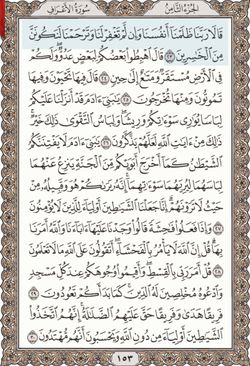 الجزء الثامن سورة الأعراف
قَالَا رَبَّنَا ظَلَمْنَآ أَنفُسَنَا وَإِن لَّمْ تَغْفِرْ لَنَا وَتَرْحَمْنَا لَنَكُونَنَّ
مِنَ ٱلْخَٰسِرِينَ ٢٣ قَالَ ٱهْبِطُوا۟ بَعْضُكُمْ لِبَعْضٍ عَدُوٌّ وَلَكُمْ
فِى ٱلْأَرْضِ مُسْتَقَرٌّ وَمَتَٰعٌ إِلَىٰ حِينٍ ٢٤ قَالَ فِيهَا تَحْيَوْنَ وَفِيهَا
تَمُوتُونَ وَمِنْهَا تُخْرَجُونَ ٢٥ يَٰبَنِىٓ ءَادَمَ قَدْ أَنزَلْنَا عَلَيْكُمْ
لِبَاسًا يُوَٰرِى سَوْءَٰتِكُمْ وَرِيشًا وَلِبَاسُ ٱلتَّقْوَىٰ ذَٰلِكَ خَيْرٌ
ذَٰلِكَ مِنْ ءَايَٰتِ ٱللَّهِ لَعَلَّهُمْ يَذَّكَّرُونَ ٢٦ يَٰبَنِىٓ ءَادَمَ لَا يَفْتِنَنَّكُمُ
ٱلشَّيْطَٰنُ كَمَآ أَخْرَجَ أَبَوَيْكُم مِّنَ ٱلْجَنَّةِ يَنزِعُ عَنْهُمَا
لِبَاسَهُمَا لِيُرِيَهُمَا سَوْءَٰتِهِمَآ إِنَّهُۥ يَرَىٰكُمْ هُوَ وَقَبِيلُهُۥ مِنْ
حَيْثُ لَا تَرَوْنَهُمْ إِنَّا جَعَلْنَا ٱلشَّيَٰطِينَ أَوْلِيَآءَ لِلَّذِينَ لَا يُؤْمِنُونَ
٢٧ وَإِذَا فَعَلُوا۟ فَٰحِشَةً قَالُوا۟ وَجَدْنَا عَلَيْهَآ ءَابَآءَنَا وَٱللَّهُ أَمَرَنَا
بِهَا قُلْ إِنَّ ٱللَّهَ لَا يَأْمُرُ بِٱلْفَحْشَآءِ أَتَقُولُونَ عَلَى ٱللَّهِ مَا لَا تَعْلَمُونَ
٢٨ قُلْ أَمَرَ رَبِّى بِٱلْقِسْطِ وَأَقِيمُوا۟ وُجُوهَكُمْ عِندَ كُلِّ مَسْجِدٍ
وَٱدْعُوهُ مُخْلِصِينَ لَهُ ٱلدِّينَ كَمَا بَدَأَكُمْ تَعُودُونَ ٢٩
فَرِيقًا هَدَىٰ وَفَرِيقًا حَقَّ عَلَيْهِمُ ٱلضَّلَٰلَةُ إِنَّهُمُ ٱتَّخَذُوا۟
ٱلشَّيَٰطِينَ أَوْلِيَآءَ مِن دُونِ ٱللَّهِ وَيَحْسَبُونَ أَنَّهُم مُّهْتَدُونَ ٣٠
١٥٣